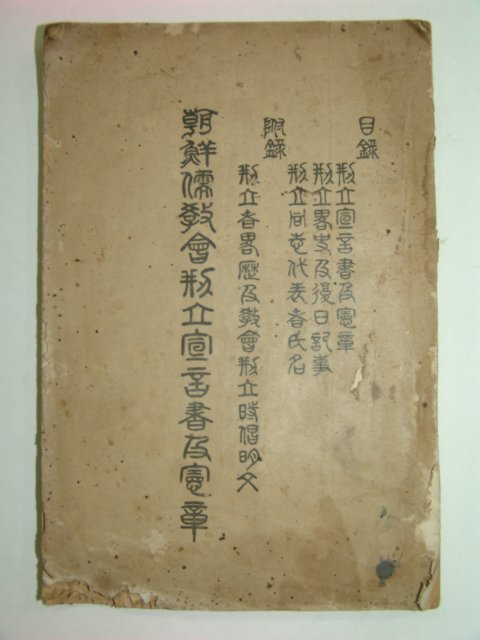 目錄
刱立宣言書及憲章
刱立畧史及後日記事
刱立同志代表者氏名
附錄
刱立者畧歷及敎會刱立時倡明文
朝鮮儒敎會刱立宣言書及憲章